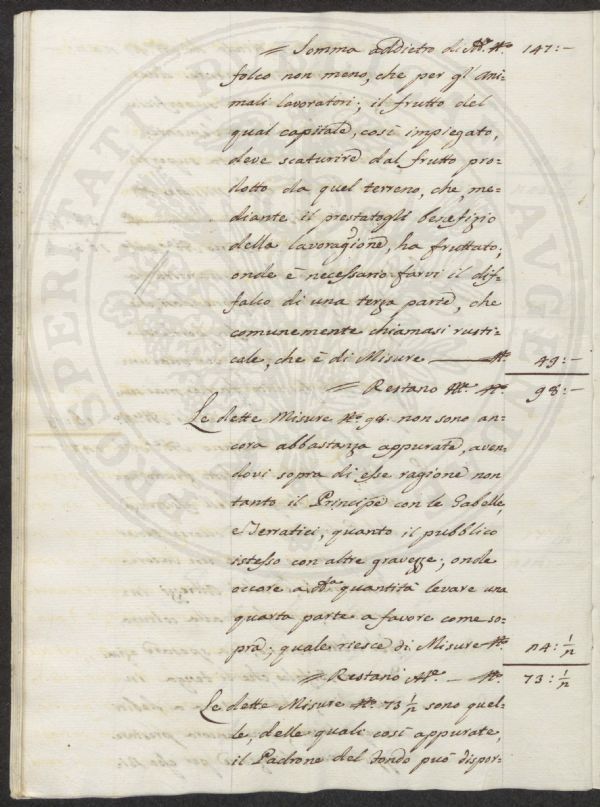 = Somma addietro di Me. No. 147:—
folco non meno, che per gl'ani=
mali lavoratori; il frutto del
qual capitale, così impiegato,
deve scaturire dal frutto pro=
dotto da quel terreno, che me=
diante il prestatogli benefizio
della lavoragione, ha fruttato;
onde è necessario farvi il dif=
falco di una terza parte, che
comunemente chiamasi rusti=
cale, che è di Misure — No. 49:—
= Restano Me. No. 98:—
Le dette Misure No. 98. non sono an=
cora abbastanza appurate, aven=
dovi sopra di esse ragione non
tanto il Principe con le Gabelle,
e Terratici, quanto il pubblico
istesso con altre gravezze; onde
occore a da. quantità levare una
quarta parte a favore come so=
pra; quale riesce di Misure No. 24: 1/2
= Restano Me. — No. 73: 1/2
Le dette Misure No. 73 1/2 sono quel=
le, delle quali così appurate,
il Padrone del fondo può dispor=
PROSPERITATI PUBLICAE AUGENDAE